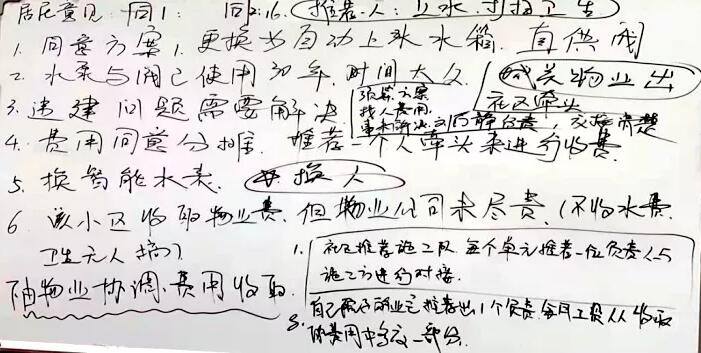 居民意见 同1: 同2:16. 推荐.人:上水.打扫卫生
1. 同意方案1, 更换为自动上来水箱. 直供阀
2. 水泵与阀已使用30年, 时间太久
相关物业出
社区牵头
3. 违建问题需要解决
找人费用
4. 费用同意分摊 推荐一个人牵头来进行收费.
5. 换智能水表. 换人
6 该小区收取物业费, 但物业公司未尽责, 不收水费.
卫生无人打扫
由物业协调.费用收取
1. 社区推荐施工队 每个单元推荐一位负责人与
施工方进行对接.
自己 推荐出1个负责 每月工资从收取
的费用中 一部分.